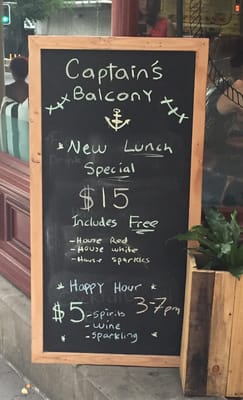 Captain's
Balcony
New Lunch
Special
$15
Includes Free
- House Red
- House white
- House sparkles
Happy Hour
$5 - spirits 3-7pm
- wine
- sparkling